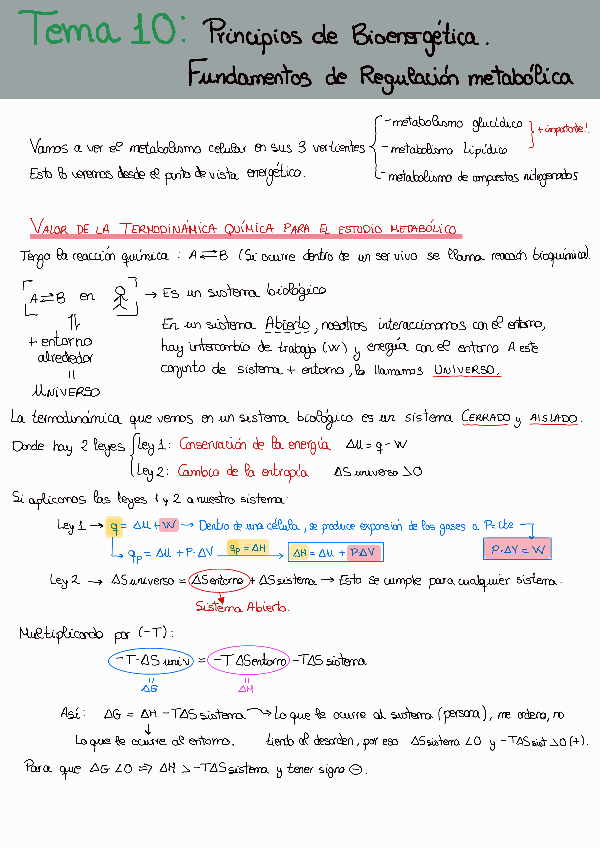 Tema 10: Principios de Bioenergética.
Fundamentos de Regulación metabólica
Vamos a ver el metabolismo celular en sus 3 vertientes
Esto lo veremos desde el punto de vista energético.
- metabolismo glucídico
- metabolismo Lipídico
- metabolismo de compuestos nitrogenados
+ importante!
VALOR DE LA TERMODINÁMICA QUÍMICA PARA EL ESTUDIO METABÓLICO
Tengo la reacción química : A ⇄ B (Si ocurre dentro de un ser vivo se llama reacción bioquímica).
A ⇄ B en → Es un sistema biológico
+ entorno
alrededor
=
UNIVERSO
En un sistema Abierto, nosotros interaccionamos con el entorno,
hay intercambio de trabajo (W) y energía con el entorno A este
conjunto de sistema + entorno, lo llamamos UNIVERSO.
La termodinámica que vemos en un sistema biológico es un sistema CERRADO y AISLADO.
Donde hay 2 leyes
Ley 1: Conservación de la energía ΔU = q - W
Ley 2: Cambio de la entropía ΔS universo > 0
Si aplicamos las leyes 1 y 2 a nuestro sistema:
Ley 1 → q = ΔU + W → Dentro de una célula, se produce expansión de los gases a P = Cte
qp = ΔU + P·ΔV qp = ΔH → ΔH = ΔU + P·ΔV P·ΔV = W
Ley 2 → ΔS universo = ΔS entorno + ΔS sistema → Esto se cumple para cualquier sistema.
Sistema Abierto.
Multiplicando por (-T):
-T·ΔS univ = -T ΔS entorno - TΔS sistema
= =
ΔG ΔH
Así: ΔG = ΔH - TΔS sistema → Lo que le ocurre al sistema (persona), me ordeno, no
Lo que le ocurre al entorno. tiendo al desorden, por eso ΔS sistema < 0 y -TΔS sist > 0 (+).
Para que ΔG < 0 ⇒ ΔH > -TΔS sistema y tener signo ⊖.